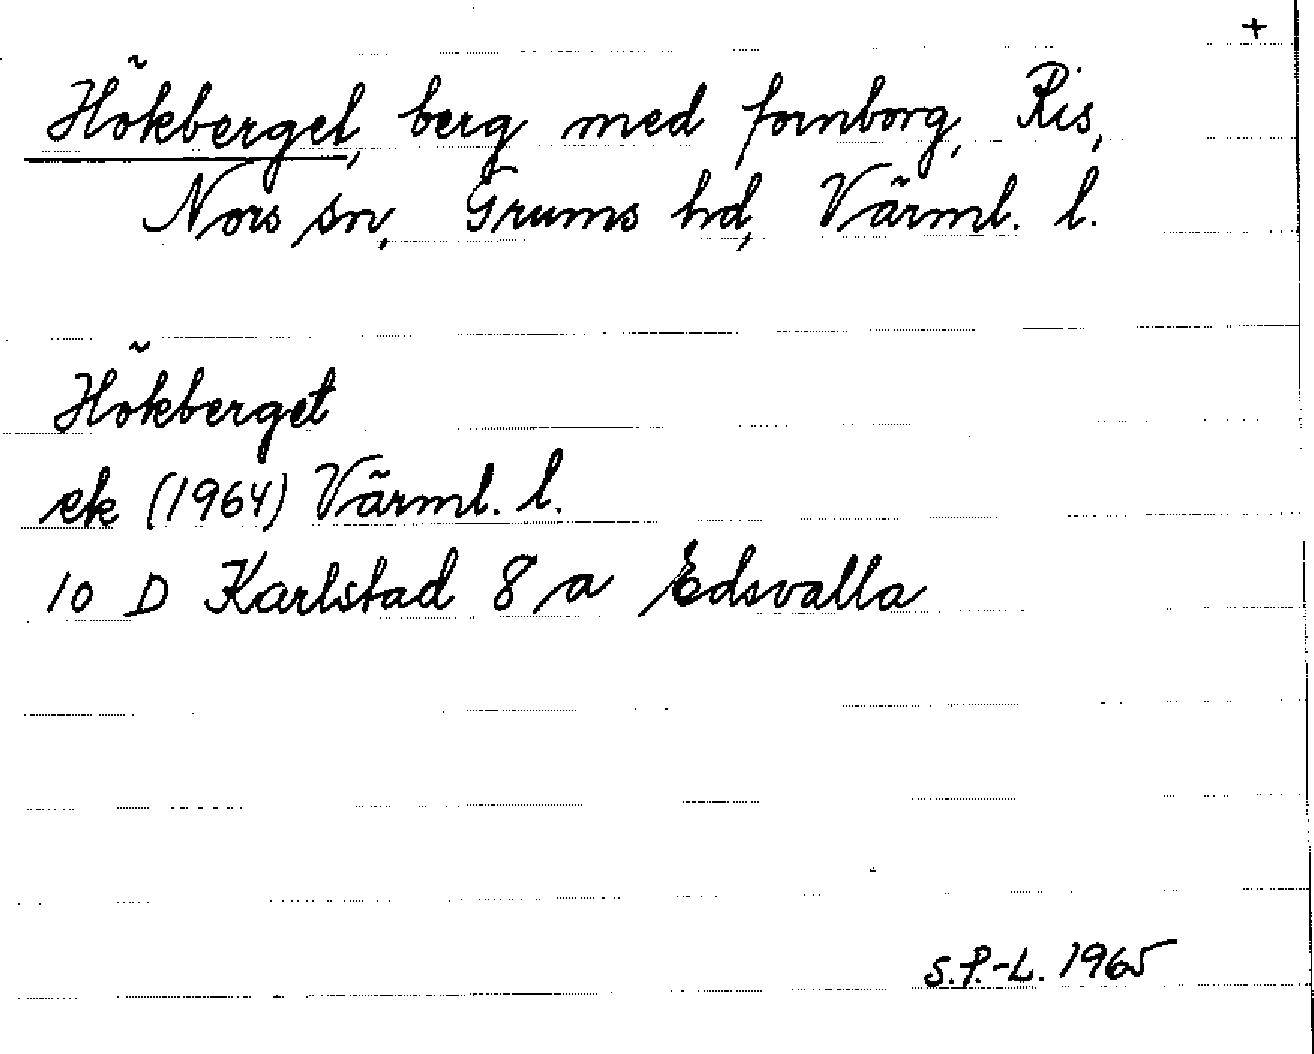 +
Hökberget, berg med fornborg, Ris,
Nors sn, Grums hd, Värml. l.
Hökberget
ek (1964) Värml. l.
10 D Karlstad 8 a Edsvalla
S.P.-L. 1965